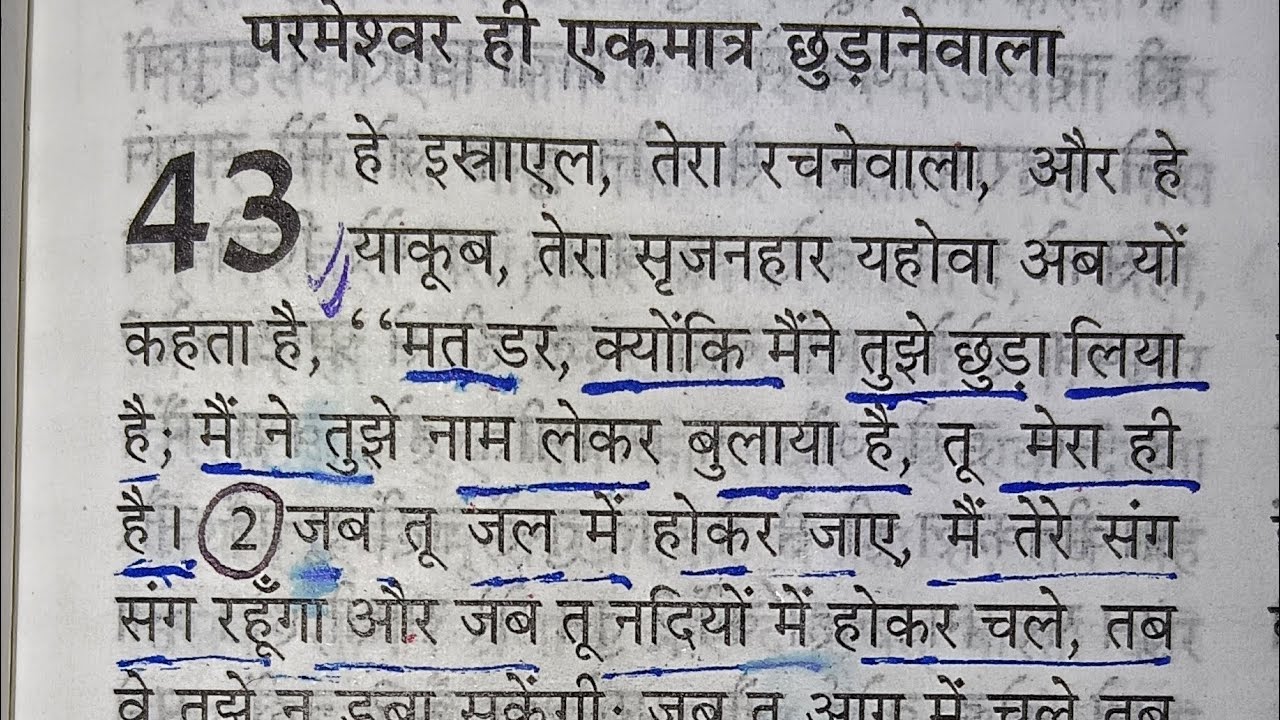 परमेश्वर ही एकमात्र छुड़ानेवाला
43 हे इस्राएल, तेरा रचनेवाला, और हे
याकूब, तेरा सृजनहार यहोवा अब यों
कहता है, “मत डर, क्योंकि मैंने तुझे छुड़ा लिया
है; मैं ने तुझे नाम लेकर बुलाया है, तू मेरा ही
है। 2 जब तू जल में होकर जाए, मैं तेरे संग
संग रहूँगा और जब तू नदियों में होकर चले, तब
वे तुझे न डुबा सकेंगी; जब तू आग में चले तब